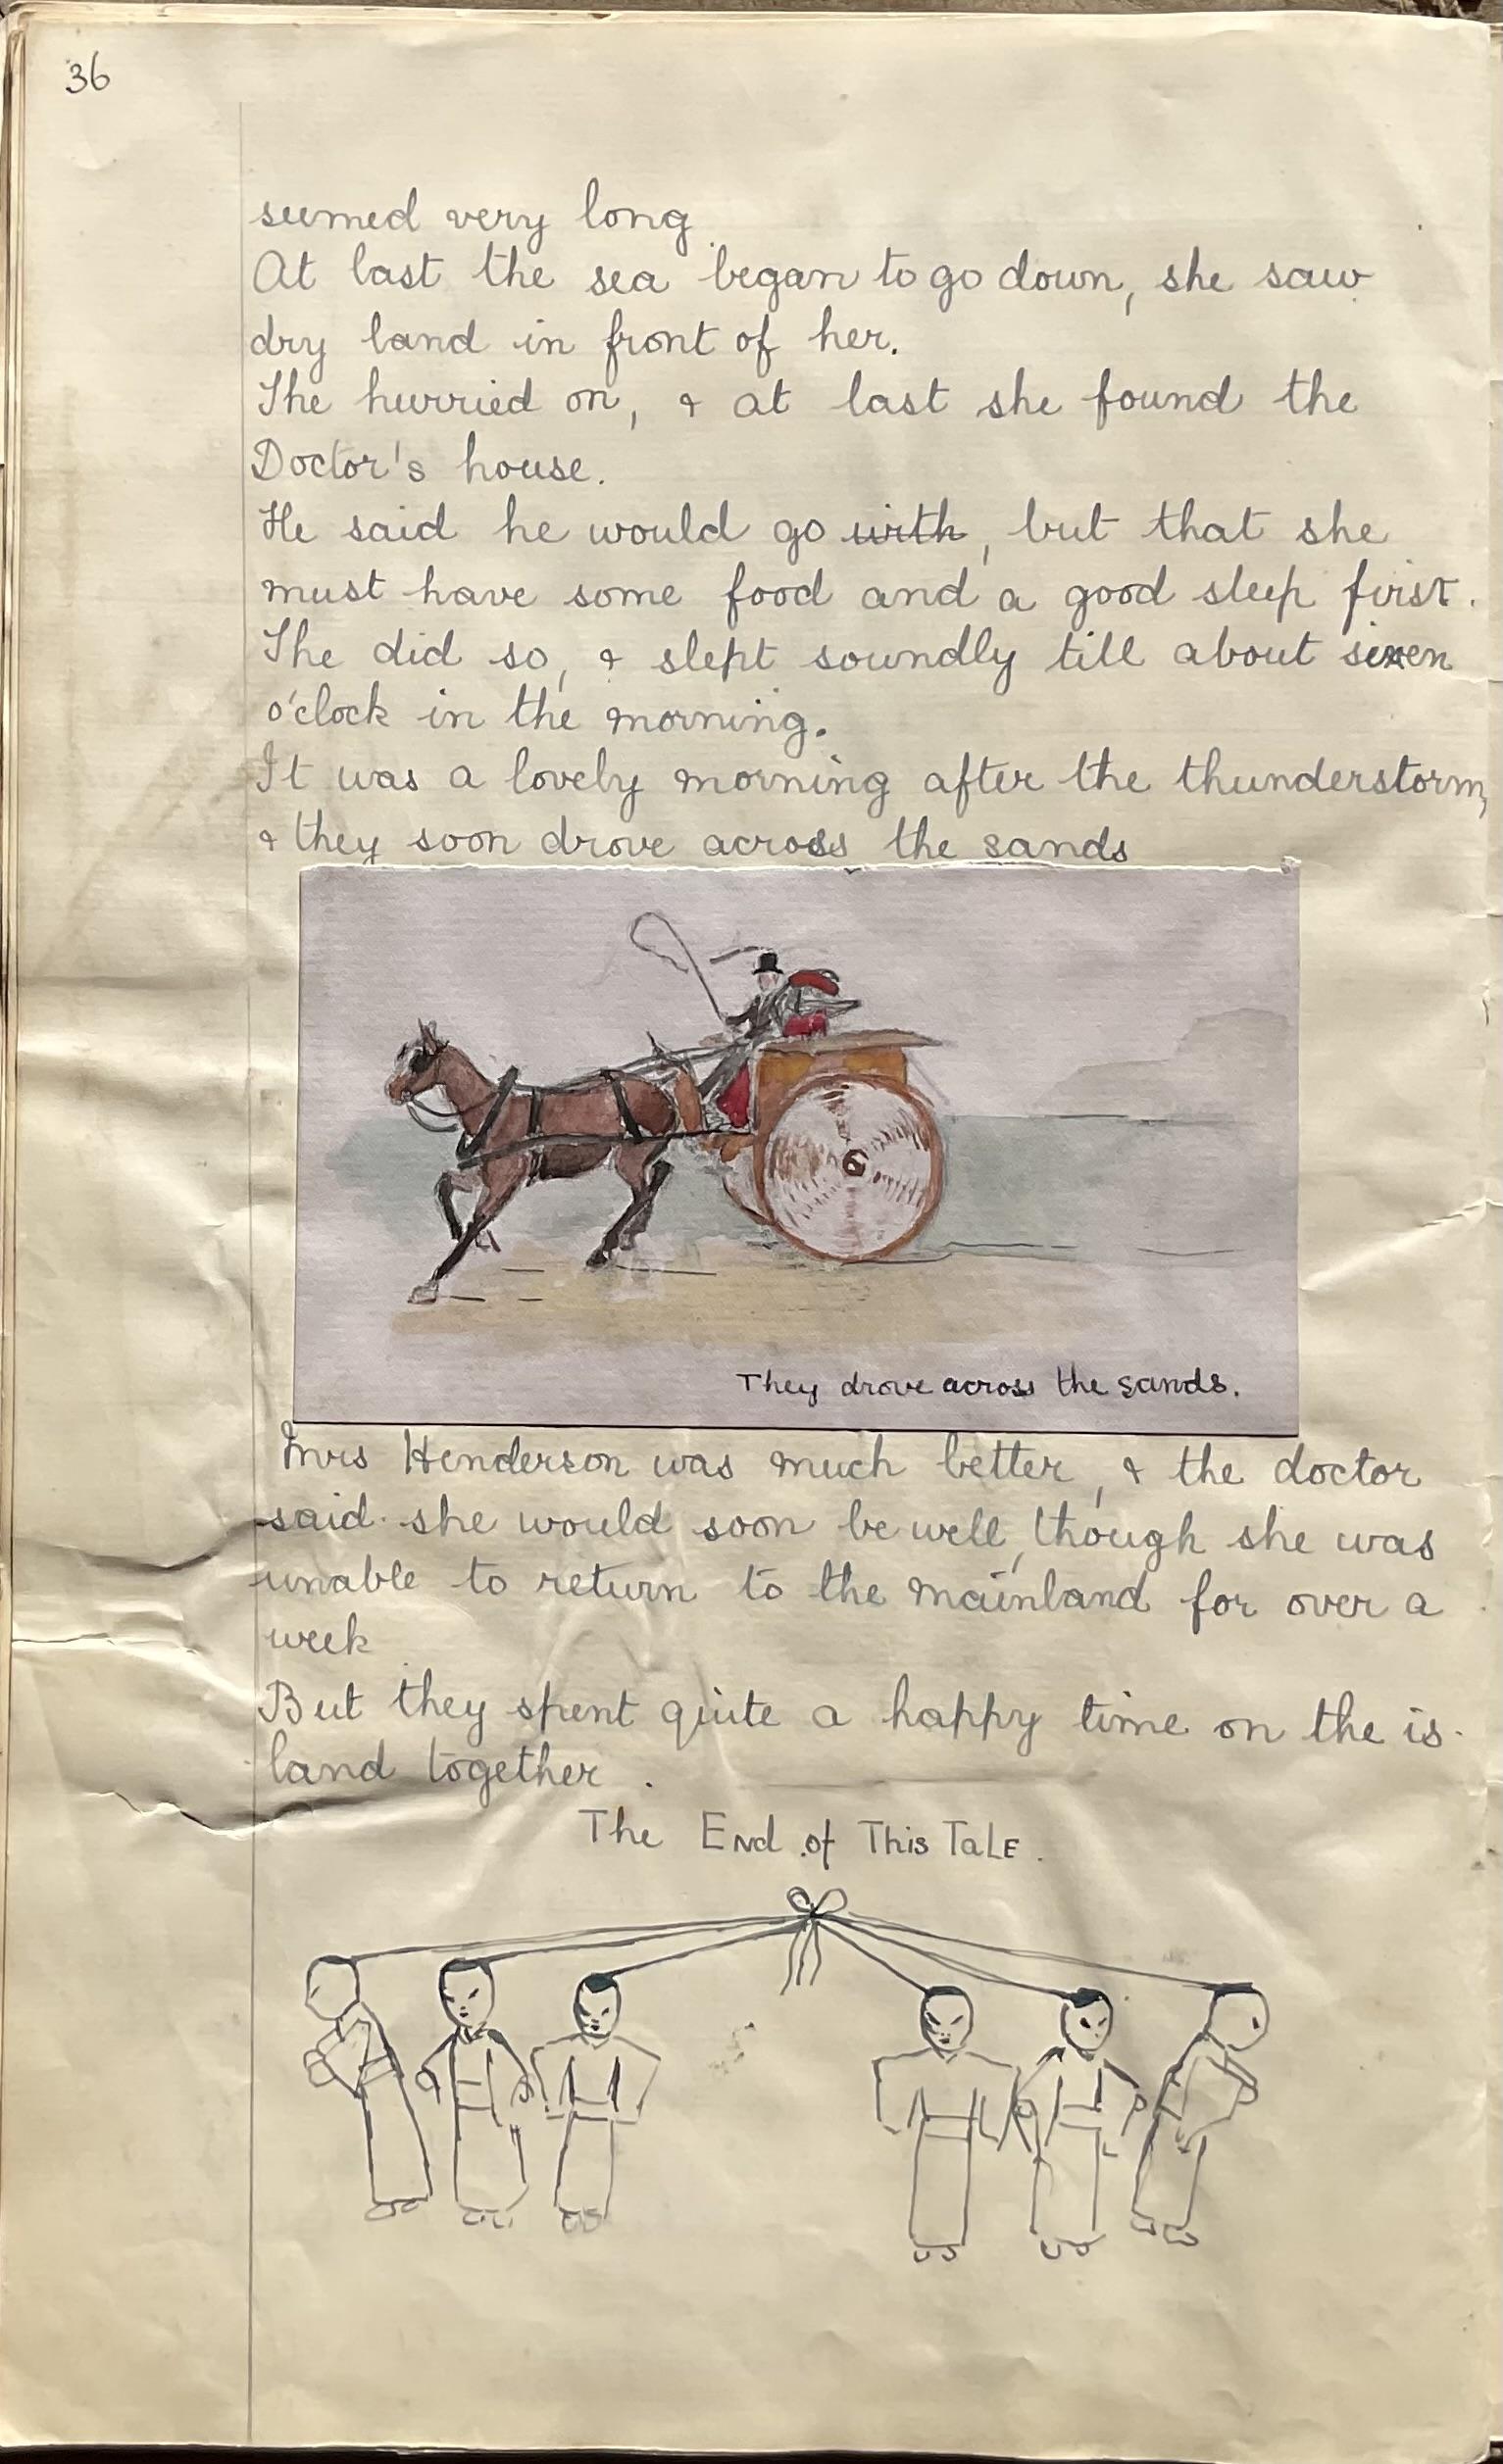 36
seemed very long.
At last the sea began to go down, she saw
dry land in front of her.
She hurried on, & at last she found the
Doctor's house.
He said he would go with, but that she
must have some food and a good sleep first.
She did so, & slept soundly till about seven
o'clock in the morning.
It was a lovely morning after the thunderstorm,
& they soon drove across the sands
They drove across the sands.
Mrs Henderson was much better, & the doctor
said she would soon be well, though she was
unable to return to the mainland for over a
week
But they spent quite a happy time on the is-
land together.
The End of This Tale.